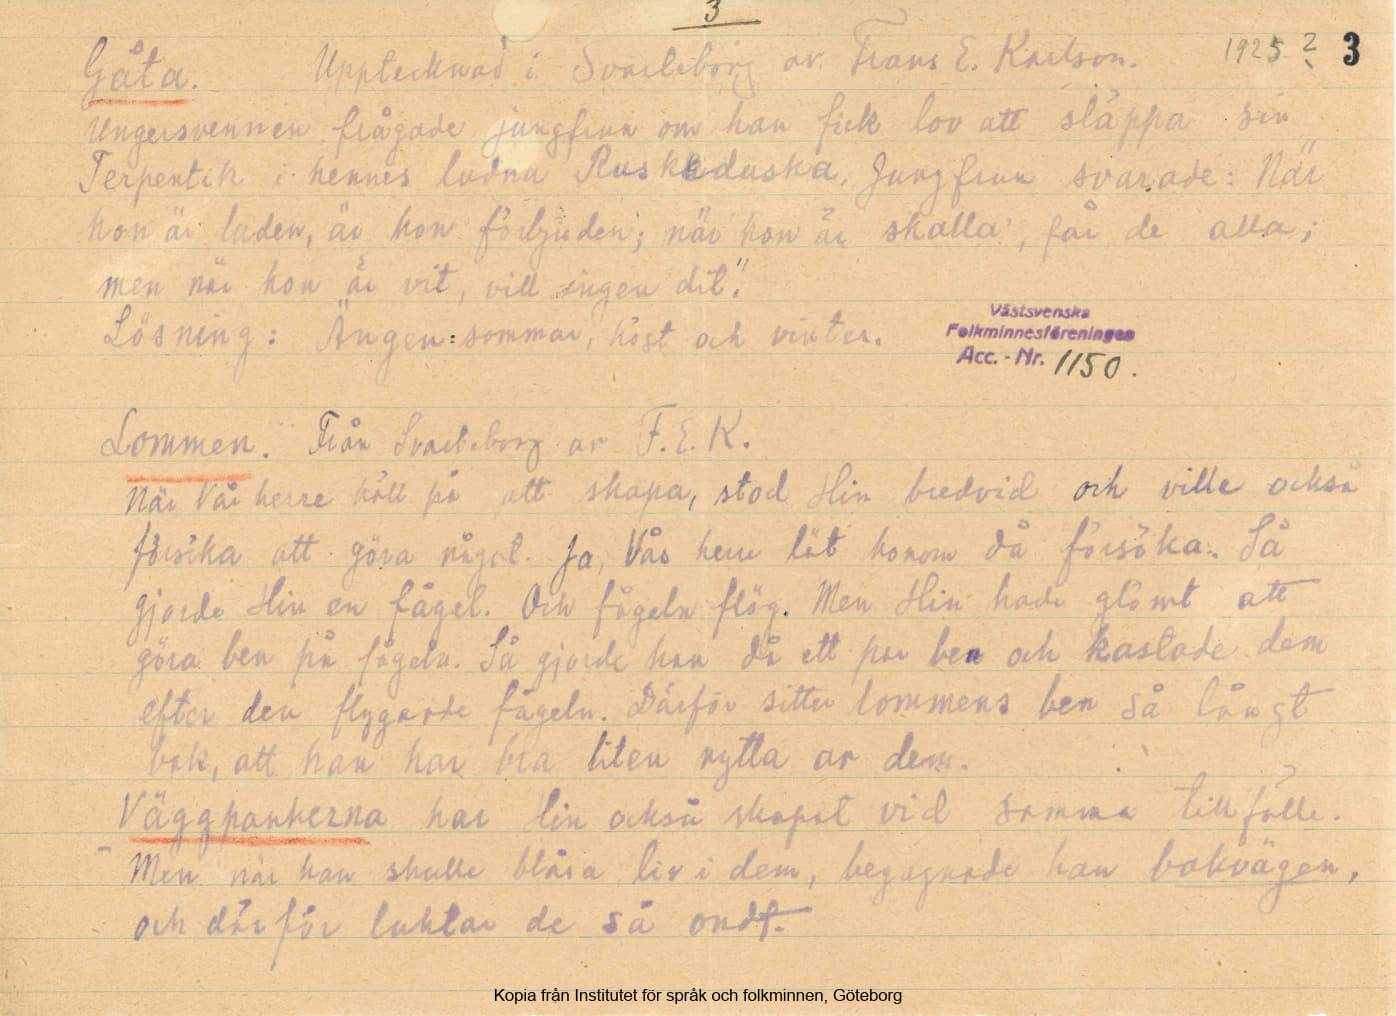 3
Gåta. Upptecknad i Svarteborg av Frans E. Karlson. 1925? 3
Ungersvennen frågade jungfrun om han fick lov att släppa sin
Terpentik i hennes ludna Ruskeduska. Jungfrun svarade: När
hon är luden, är hon förbjuden; när hon är skalla, får de alla;
men när hon är vit, vill ingen dit."
Lösning: Ängen: sommar, höst och vinter.
Västsvenska
Folkminnesföreningen
Acc. - Nr. 1150.
Lommen. Från Svarteborg av F. E. K.
När Vår herre höll på att skapa, stod Hin bredvid och ville också
försöka att göra något. Ja, Vår herre lät honom då försöka. Så
gjorde Hin en fågel. Och fågeln flög. Men Hin hade glömt att
göra ben på fågeln. Så gjorde han då ett par ben och kastade dem
efter den flygande fågeln. Därför sitter lommens ben så långt
bak, att han har bra liten nytta av dem.
Väggpankerna har Hin också skapat vid samma tillfälle.
Men när han skulle blåsa liv i dem, begagnade han bakvägen,
och därför luktar de så ondt.
Kopia från Institutet för språk och folkminnen, Göteborg